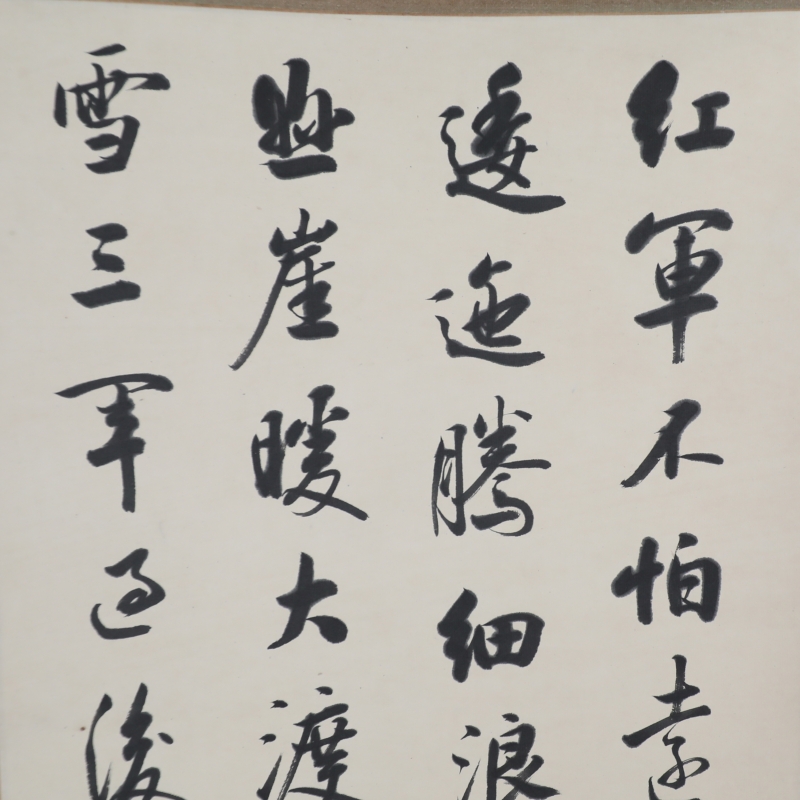 紅軍不怕遠
逶迤騰細浪
懸崖暖大渡
雪三軍過後